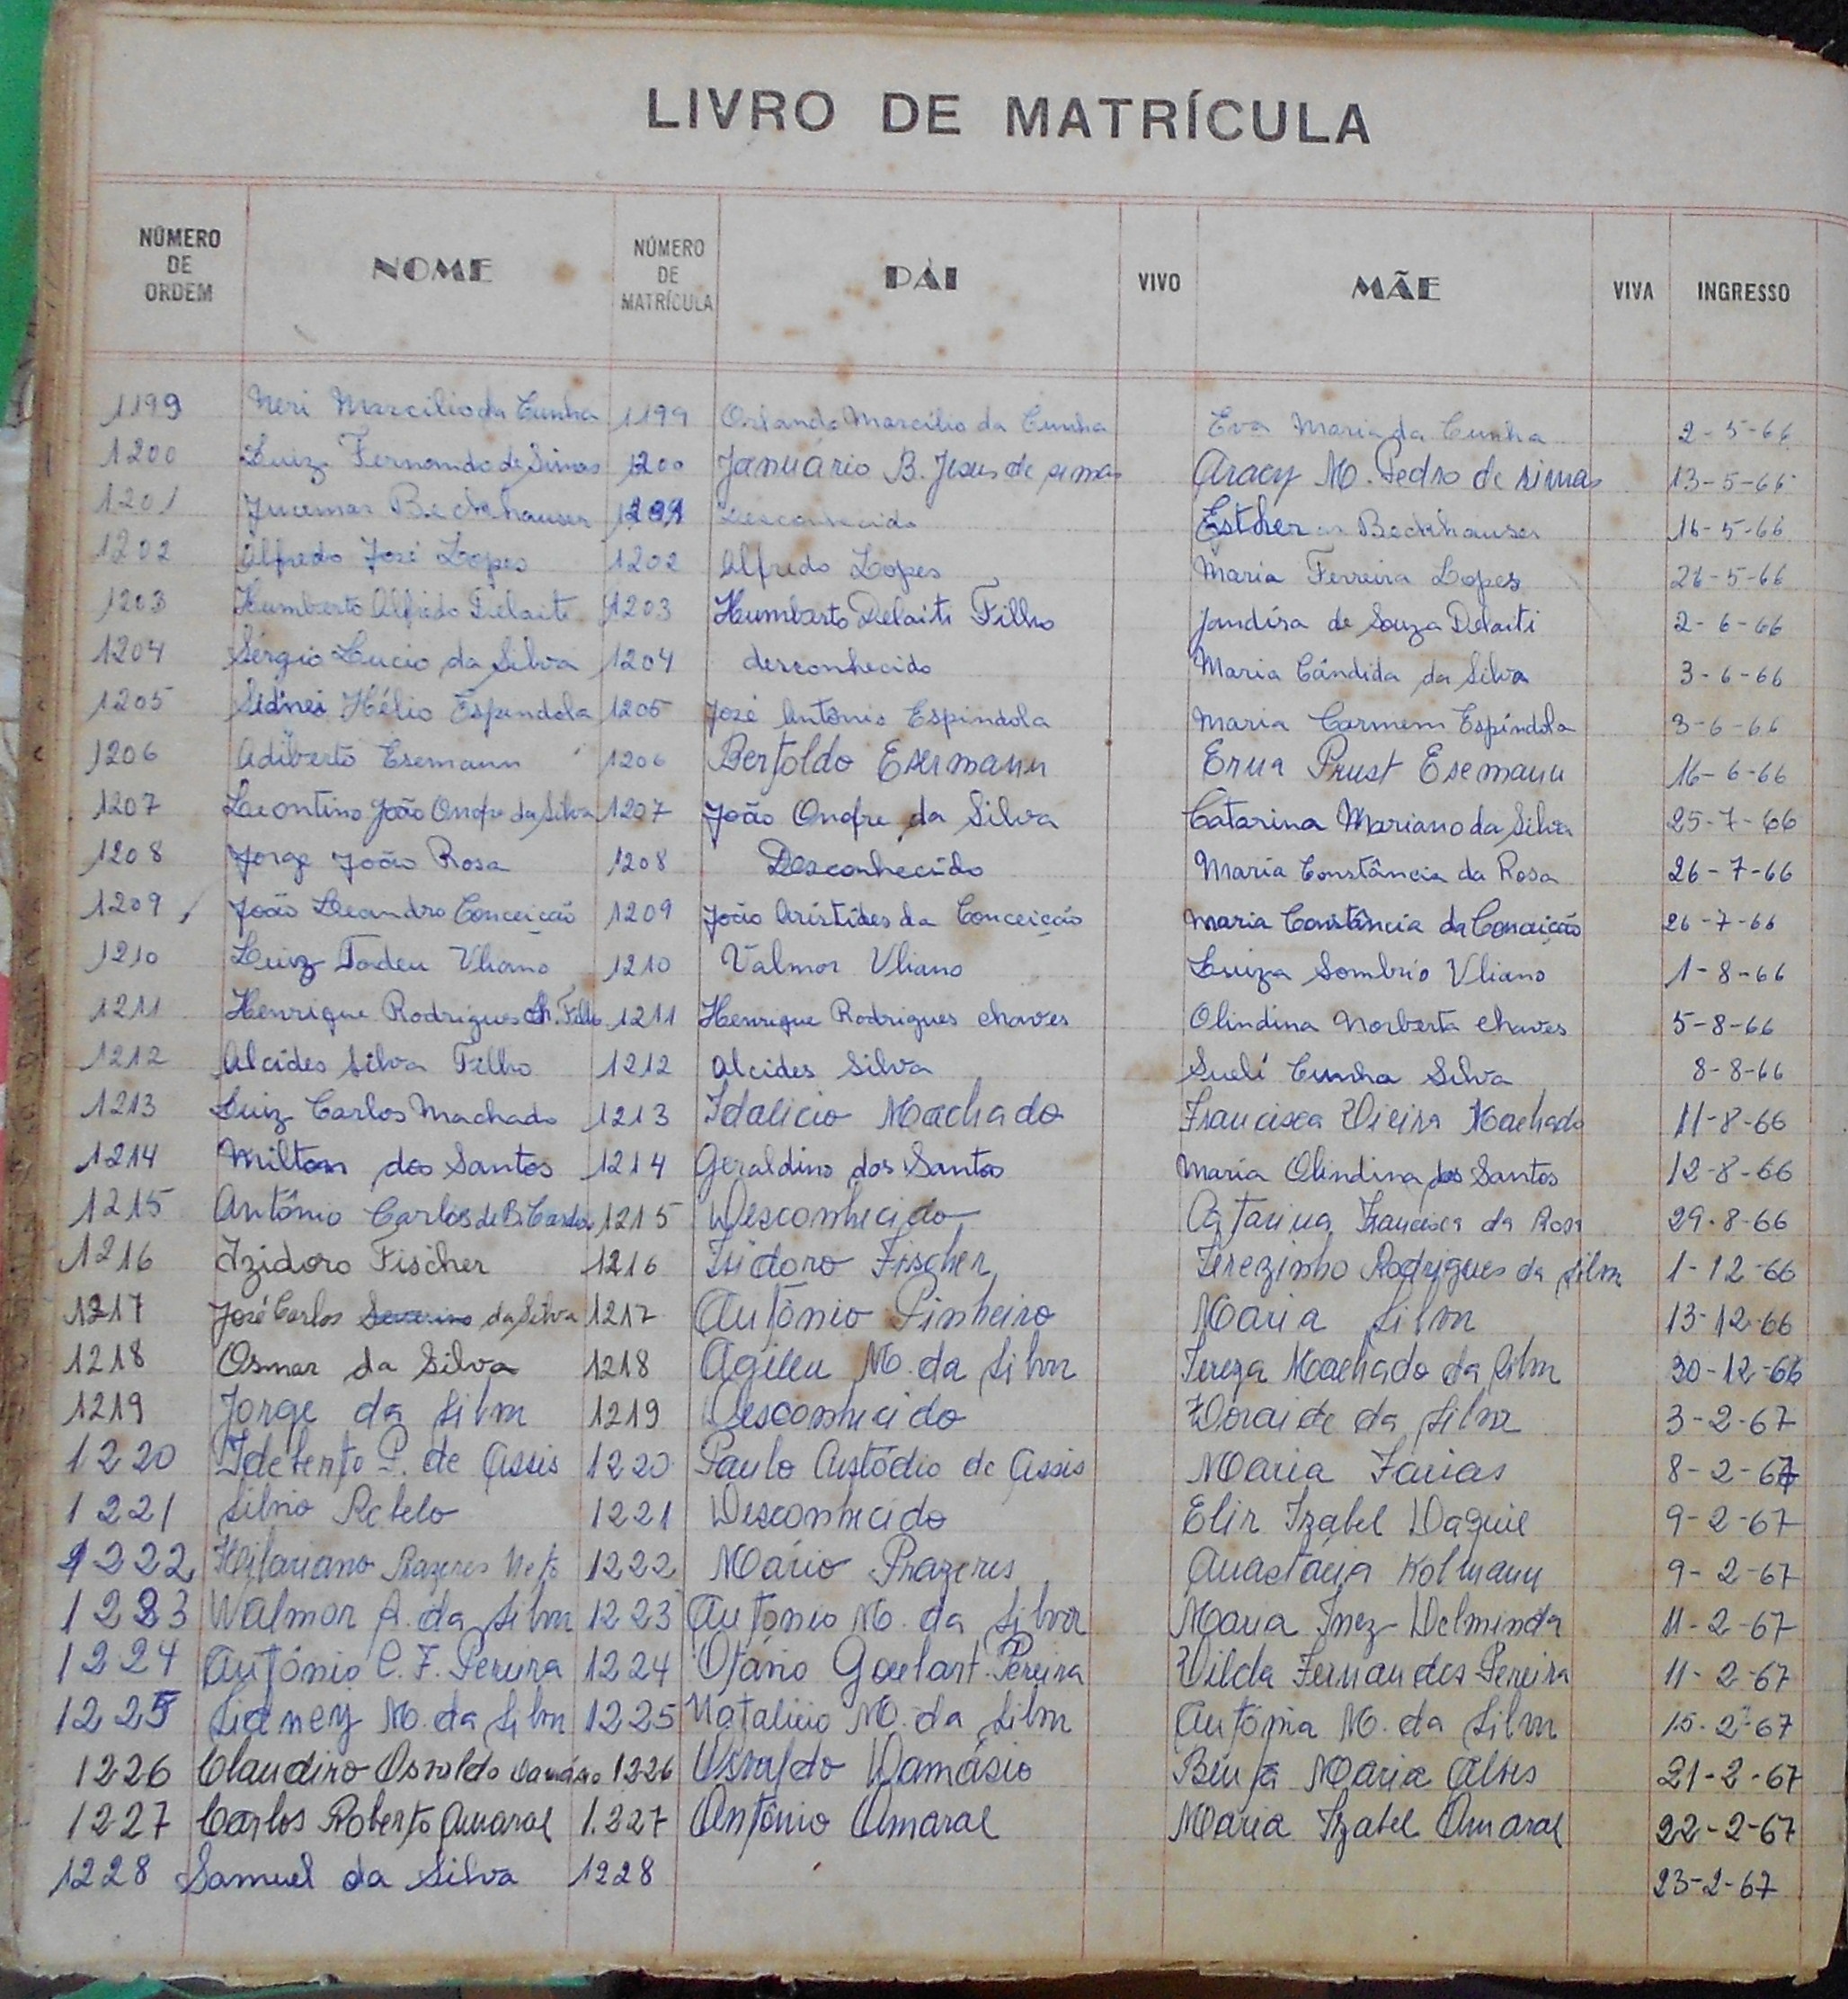 LIVRO DE MATRÍCULA
NÚMERO DE ORDEM NOME NÚMERO DE MATRÍCULA PAI VIVO MÃE VIVA INGRESSO
1199 Neri Marcilio da Cunha 1199 Orlando Marcílio da Cunha Eva Maria da Cunha 2-5-66
1200 Luiz Fernando de Simas 1200 Januário B. Jesus de simas Aracy M. Pedro de simas 13-5-66
1201 Jucemar Beckhauser 1201 Desconhecido Esther Beckhauser 16-5-66
1202 Alfredo José Lopes 1202 Alfredo Lopes Maria Ferreira Lopes 26-5-66
1203 Humberto Alfredo Delaiti 1203 Humberto Delaiti Filho Jandira de Souza Delaiti 2-6-66
1204 Sérgio Lucio da Silva 1204 desconhecido Maria Cândida da Silva 3-6-66
1205 Sidnei Hélio Espíndola 1205 José Antônio Espíndola Maria Carmem Espíndola 3-6-66
1206 Adiberto Esemann 1206 Bertoldo Esermann Erna Prust Esemann 16-6-66
1207 Leontino João Onofre da Silva 1207 João Onofre da Silva Catarina Mariano da Silva 25-7-66
1208 Jorge João Rosa 1208 Desconhecido Maria Constância da Rosa 26-7-66
1209 João Leandro Conceição 1209 João Arístides da Conceição Maria Constância da Conceição 26-7-66
1210 Luiz Tadeu Uliano 1210 Valmor Uliano Luiza Sombrio Uliano 1-8-66
1211 Henrique Rodrigues Ch. Filho 1211 Henrique Rodrigues chaves Olindina Norberta chaves 5-8-66
1212 Alcides Silva Filho 1212 Alcides Silva Sueli Cunha Silva 8-8-66
1213 Luiz Carlos Machado 1213 Idalicio Machado Francisca Vieira Machado 11-8-66
1214 Milton dos Santos 1214 Geraldino dos Santos Maria Olindina dos Santos 12-8-66
1215 Antônio Carlos de 1215 Desconhecido Catarina Francisca da Rosa 29-8-66
1216 Izidoro Fischer 1216 Isidoro Fischer Terezinha Rodrigues da Silva 1-12-66
1217 José Carlos Severino da Silva 1217 Antônio Pinheiro Maria Silva 13-12-66
1218 Osmar da Silva 1218 M. da Silva Tereza Machado da Silva 30-12-66
1219 Jorge da Silva 1219 Desconhecido Doraide da Silva 3-2-67
1220 P. de Assis 1220 Paulo Custódio de Assis Maria Farias 8-2-67
1221 Silvio Rebelo 1221 Desconhecido Elir Izabel 9-2-67
1222 Hilariano Prazeres Neto 1222 Mário Prazeres Anastácia Kolmann 9-2-67
1223 Walmor A. da Silva 1223 Antonio M. da Silva Maria Inez Delminda 11-2-67
1224 Antônio C. F. Pereira 1224 Otávio Goulart Pereira Vilda Fernandes Pereira 11-2-67
1225 Sidney M. da Silva 1225 Natalicio M. da Silva Antônia M. da Silva 15-2-67
1226 Claudino Osvaldo Damásio 1226 Osvaldo Damásio Benta Maria Alves 21-2-67
1227 Carlos Roberto Amaral 1.227 Antônio Amaral Maria Izabel Amaral 22-2-67
1228 Samuel da Silva 1228 23-2-67